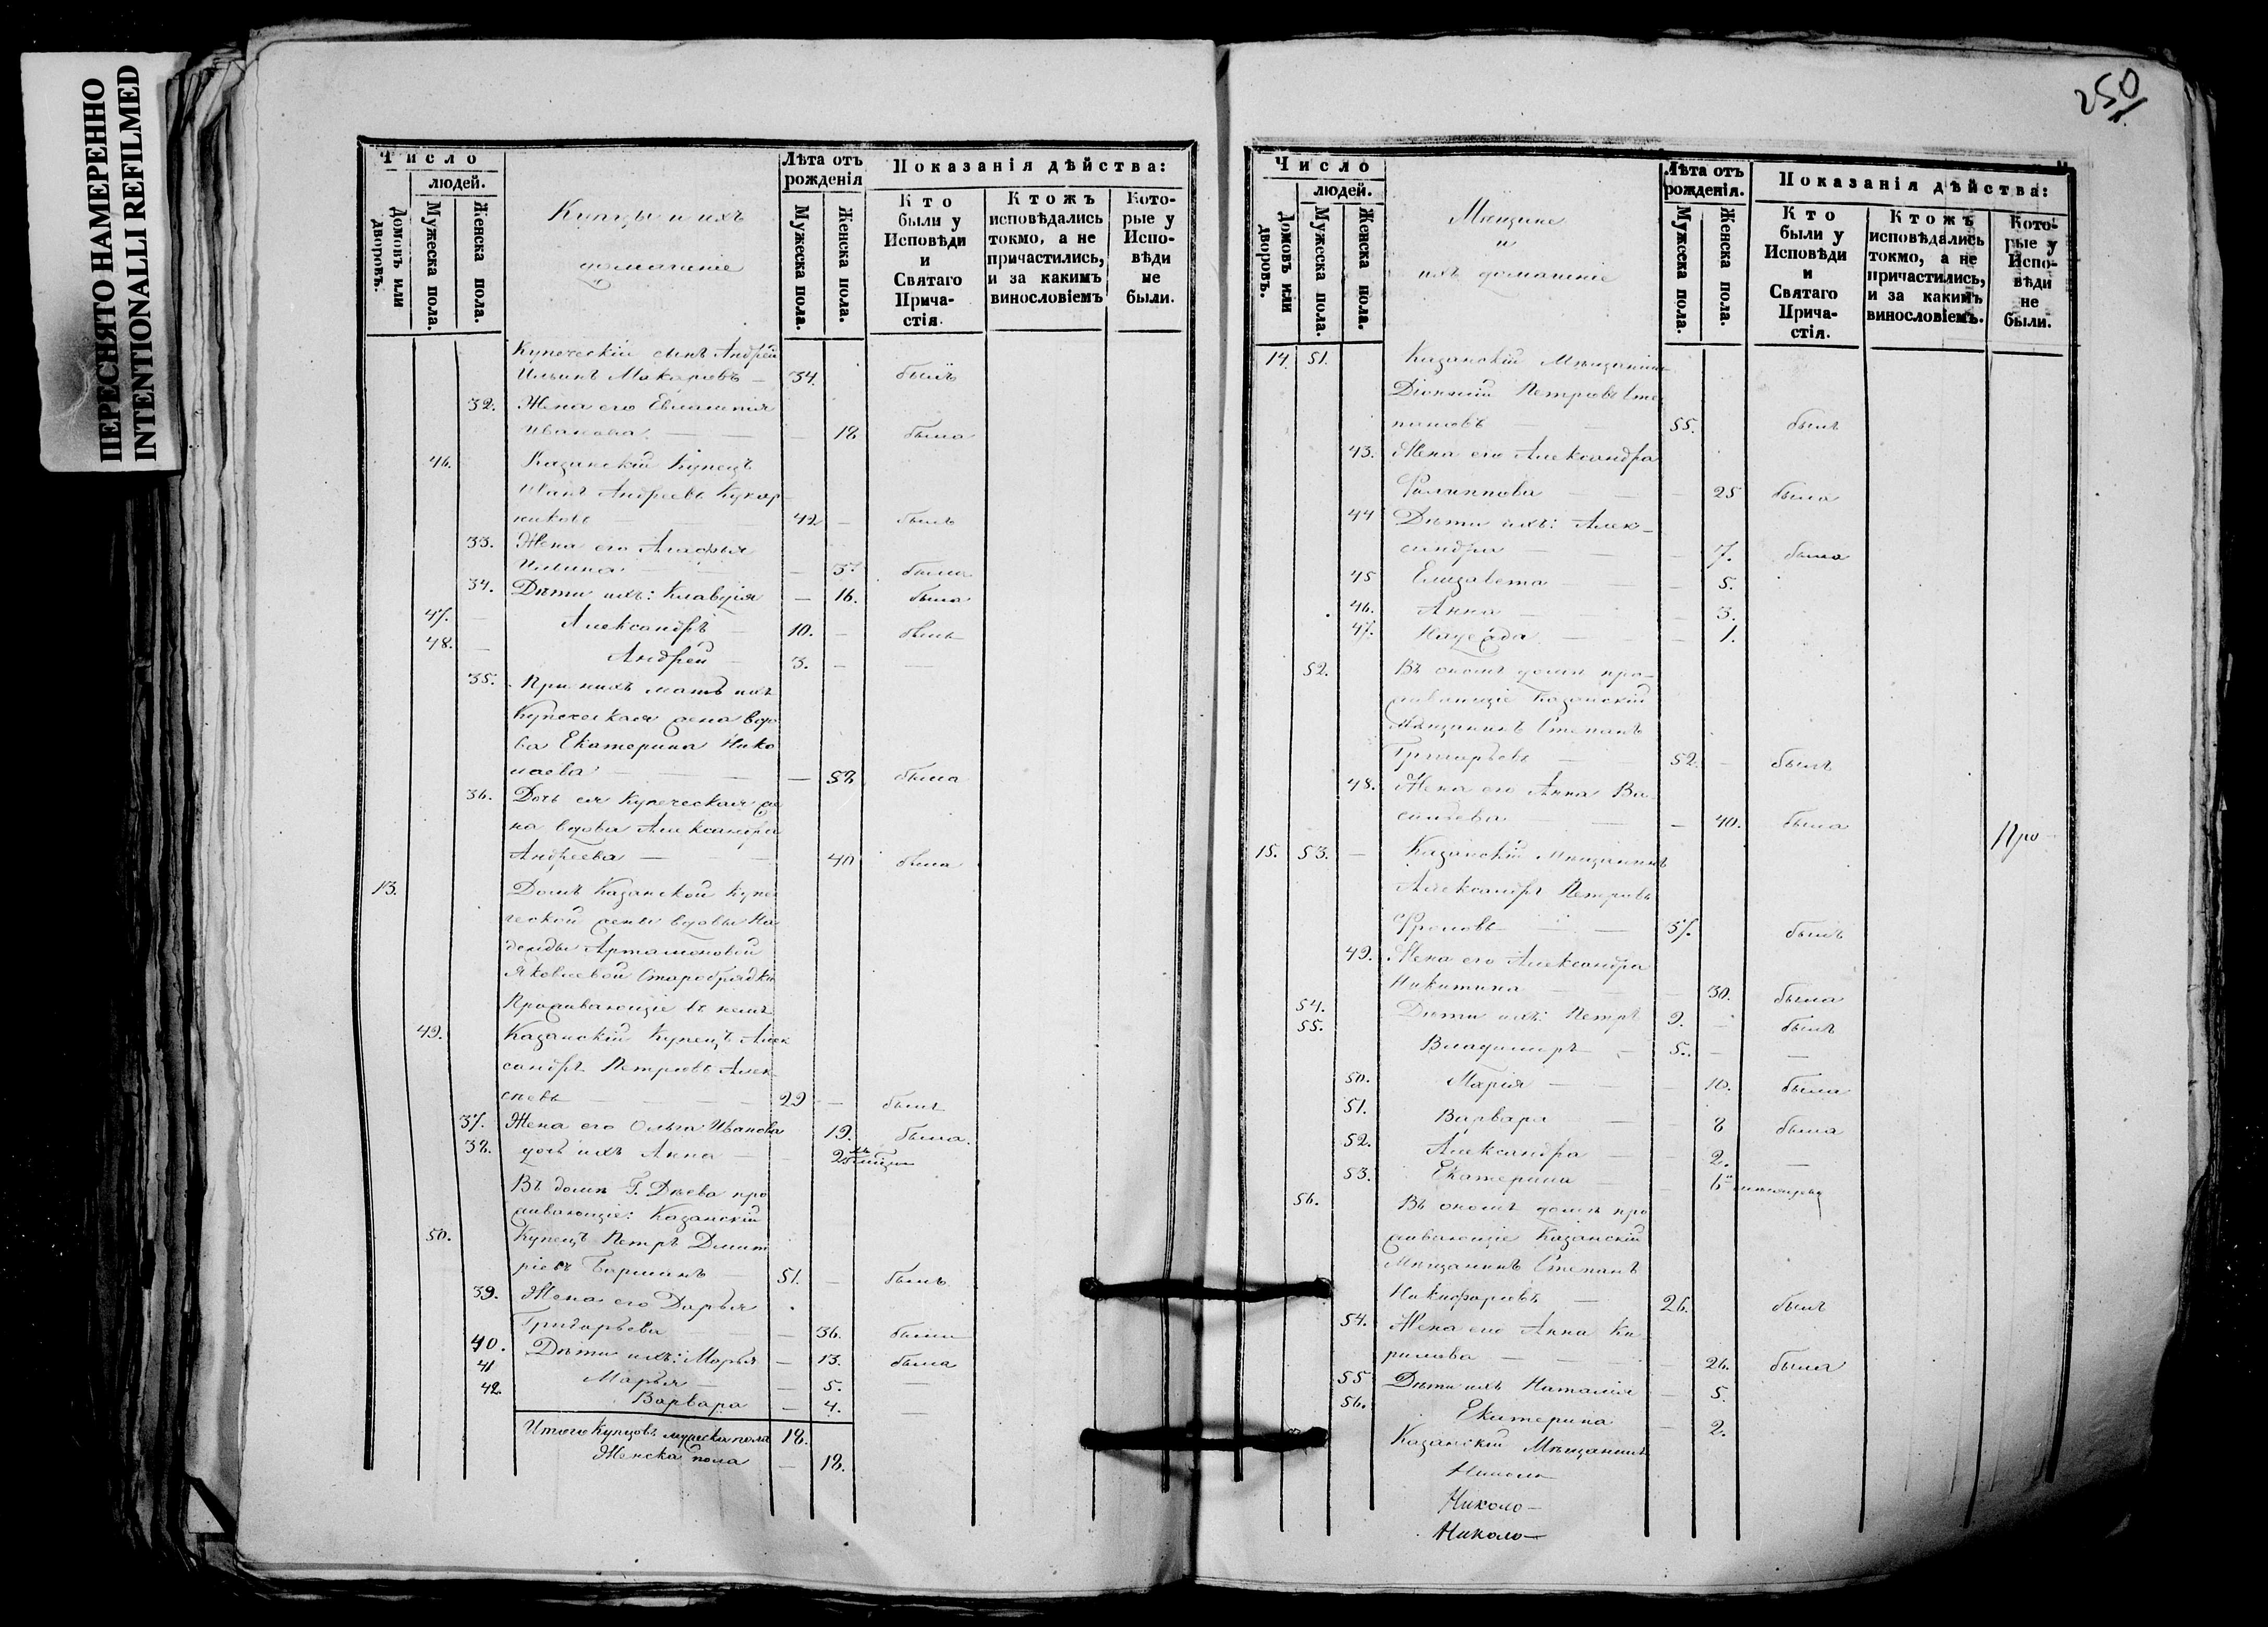 ПЕРЕСНЯТО НАМЕРЕННО
INTENTIONALLI REFILMED
250
Число
людей.
Домовъ или дворовъ.
Мужеска пола.
Женска пола.
Купцы и ихъ
домашніе
Лѣта отъ рожденія
Мужеска пола.
Женска пола.
Показанія дѣйства:
Кто были у Исповѣди и Святаго Прича-стія.
Ктожъ исповѣдались токмо, а не причастились, и за какимъ винословіемъ
Кото-рые у Испо-вѣди не были.
Купеческій сынъ Андрей
Ильинъ Макаровъ — 34. былъ
32. Жена его Евлампія
Иванова — — — 18 была
46. Казанскій Купецъ
Иванъ Андреевъ Кукар-
никовъ — 42 — былъ
33. Жена его Агафья
Ильина — 37 была
34. Дѣти ихъ: Клавдія — 16. была
47. — Александръ — 10. — былъ
48. — Андрей — 3. — —
35. При нихъ мать ихъ
Купеческая жена вдо
ва Екатерина Нико
лаева — — — — 58 была
36. Дочь ея Купеческая же
на вдова Александра
Андреева — — 40 была
13. Домъ Казанской Купе
ческой жены вдовы На
дежды Артамоновой
Яковлевой Старобрядки
Проживающіе въ немъ
49. Казанскій Купецъ Алек
сандръ Петровъ Алек
сѣевъ — — — — 29 — былъ
37. Жена его Ольга Иванова 19. была.
38. дочь ихъ Анна — —
Въ домѣ Г. Дѣева про
живающіе: Казанскій
50. Купецъ Петръ Дмит
ріевъ — 51. — былъ
39. Жена его Дарья
Григорьева — 36. была
40. Дѣти ихъ: Марья — 13. была
41 Марья — — 5. —
42. Варвара — 4. —
Итого Купцовъ мужеска пола 18.
Женска пола — 18.
Число
людей.
Домовъ или дворовъ.
Мужеска пола.
Женска пола.
Мѣщане
и
ихъ домашніе
Лѣта отъ рожденія.
Мужеска пола.
Женска пола.
Показанія дѣйства:
Кто были у Исповѣди и Святаго Прича-стія.
Ктожъ исповѣдались токмо, а не причастились, и за какимъ винословіемъ.
Кото-рые у Испо-вѣди не были.
14. 51. Казанскій Мѣщанинъ
Діонисій Петровъ Сте
пановъ — — 55. былъ
43. Жена его Александра
Филиппова — — — 25 была
44 Дѣти ихъ: Алек-
сандра — — — 7. была
45 Елизавета — — — 5.
46. Анна — — 3.
47. Надежда — — 1.
52. Въ ономъ домѣ про-
живающіе Казанскій
Мѣщанинъ Степанъ
Григорьевъ — 52. — былъ
48. Жена его Анна Ва-
сильева — — — 40. была
Про
15. 53. — Казанскій Мѣщанинъ
Александръ Петровъ
Фроловъ — — 37. былъ
49. Жена его Александра
Никитина — — — 30. была
54. Дѣти ихъ: Петръ 9. — былъ
55. Владимиръ — 5. — —
50. Марія — — — 10. была
51. Варвара — — 8 была
52. Александра — — 2. —
53. Екатерина — — 6
56. Въ ономъ домѣ про
живающіе Казанскій
Мѣщанинъ Степанъ
Никифоровъ — 26. былъ
54. Жена его Анна Ки
рилова — — — 26. была
55 Дѣти ихъ Наталія — 5.
56. Екатерина — 2.
Казанскій Мѣщанинъ
Николо
Николо—
Николо—